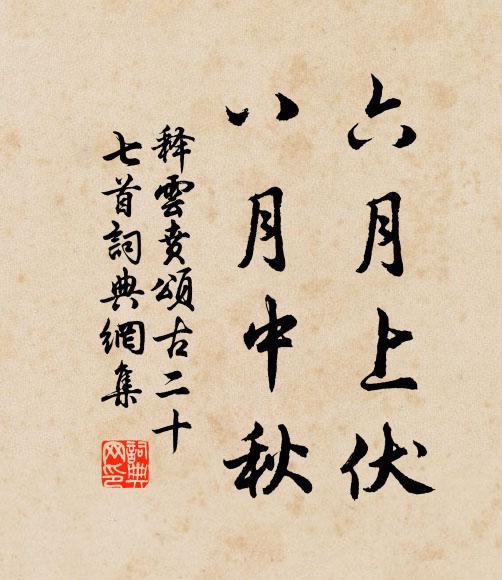 六月上伏
八月中秋
释雲賁頌古二十
七首詞典網集
詞典
网印